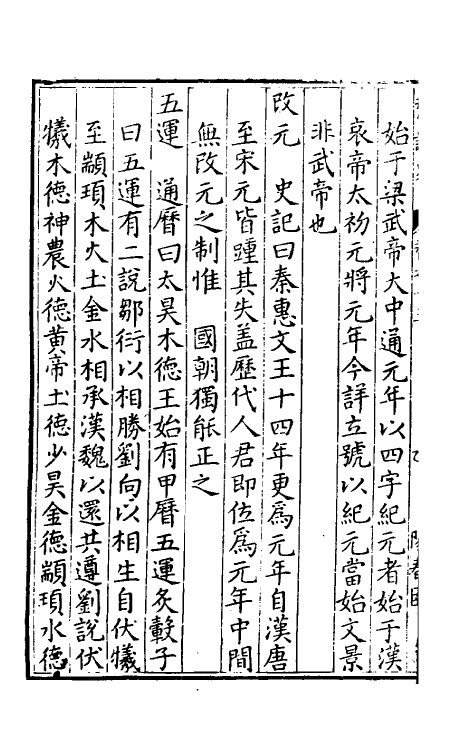 始于梁武帝大中通元年以四字紀元者始于漢
哀帝太初元將元年今詳立號以紀元當始文景
非武帝也
改元　史記曰秦惠文王十四年更爲元年自漢唐
至宋元皆踵其失盖歷代人君即位爲元年中間
無改元之制惟　國朝獨能正之
五運　通曆曰太昊木徳王始有甲曆五運炙轂子
曰五運有二說鄒衍以相勝劉向以相生自伏犧
至顓頊木火土金水相承漢魏以還共遵劉說伏
犧木徳神農火徳黄帝土徳少昊金徳顓頊水徳